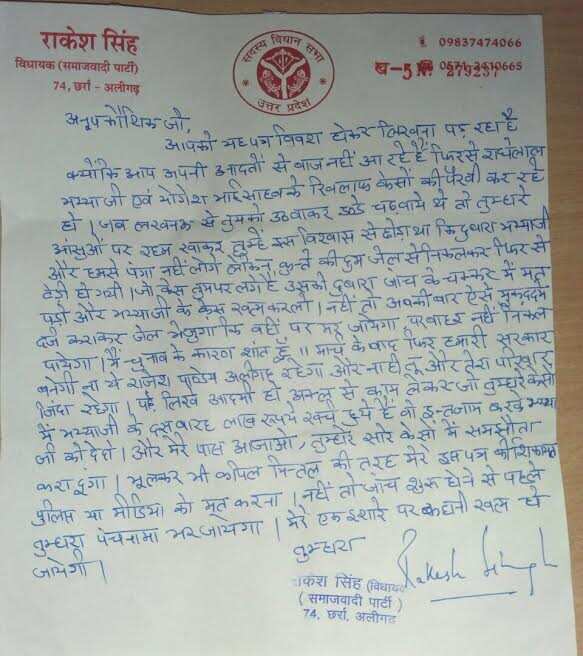 राकेश सिंह
विधायक (समाजवादी पार्टी)
74, छर्रा - अलीगढ़
सदस्य विधान सभा
उत्तर प्रदेश
09837474066
0571-2410665
ख-5 279237
अनूप कौशिक जी,
आपको यह पत्र विवश होकर लिखना पड़ रहा है
क्योंकि आप अपनी आदतों से बाज नहीं आ रहे हैं फिर से राधेलाल
भय्याजी एवं योगेश भाई साहब के खिलाफ केसों की पैरवी कर रहे
हो। जब लखनऊ से तुमको उठवाकर डंडे चढ़वाये थे तो तुम्हारे
आंसुओं पर रहम खाकर तुम्हें इस विश्वास से छोड़ा था कि दुबारा भय्याजी
और हमसे पंगा नहीं लोगे लेकिन कुत्ते की दुम जेल से निकलकर फिर से
टेड़ी हो गयी। जो केस तुमपर लगे हैं उसकी दुबारा जांच के चक्कर में मत
पड़ो और भय्याजी के केस खत्म करलो। नहीं तो अबकी बार ऐसे मुकद्दमे
दर्ज कराकर जेल भेजुगा कि वहीं पर मर जायेगा, बाहर नहीं निकल
पायेगा। मैं चुनाव के कारण शांत हूँ ॥ मार्च के बाद फिर हमारी सरकार
बनेगी ना ये राजेश पाण्डेय अलीगढ़ रहेगा और ना ही तू और तेरा परिवार
जिंदा रहेगा। पढ़े लिखे आदमी हो अक्ल से काम लेकर जो तुम्हारे केसों
में भय्याजी के दस बारह लाख रूपये खर्च हुये हैं वो इन्तजाम करके भय्या
जी को देदो। और मेरे पास आजाओ, तुम्हारे सारे केसों में समझौता
करा दूगा। भूलकर भी कपिल मित्तल की तरह मेरे इस पत्र की शिकायत
पुलिस या मीडिया को मत करना। नहीं तो जांच शुरू होने से पहले
तुम्हारा पंचनामा भर जायेगा। मेरे एक इशारे पर कहानी खत्म हो
जायेगी।
तुम्हारा
Rakesh Singh
राकेश सिंह (विधायक)
(समाजवादी पार्टी)
74, छर्रा, अलीगढ़